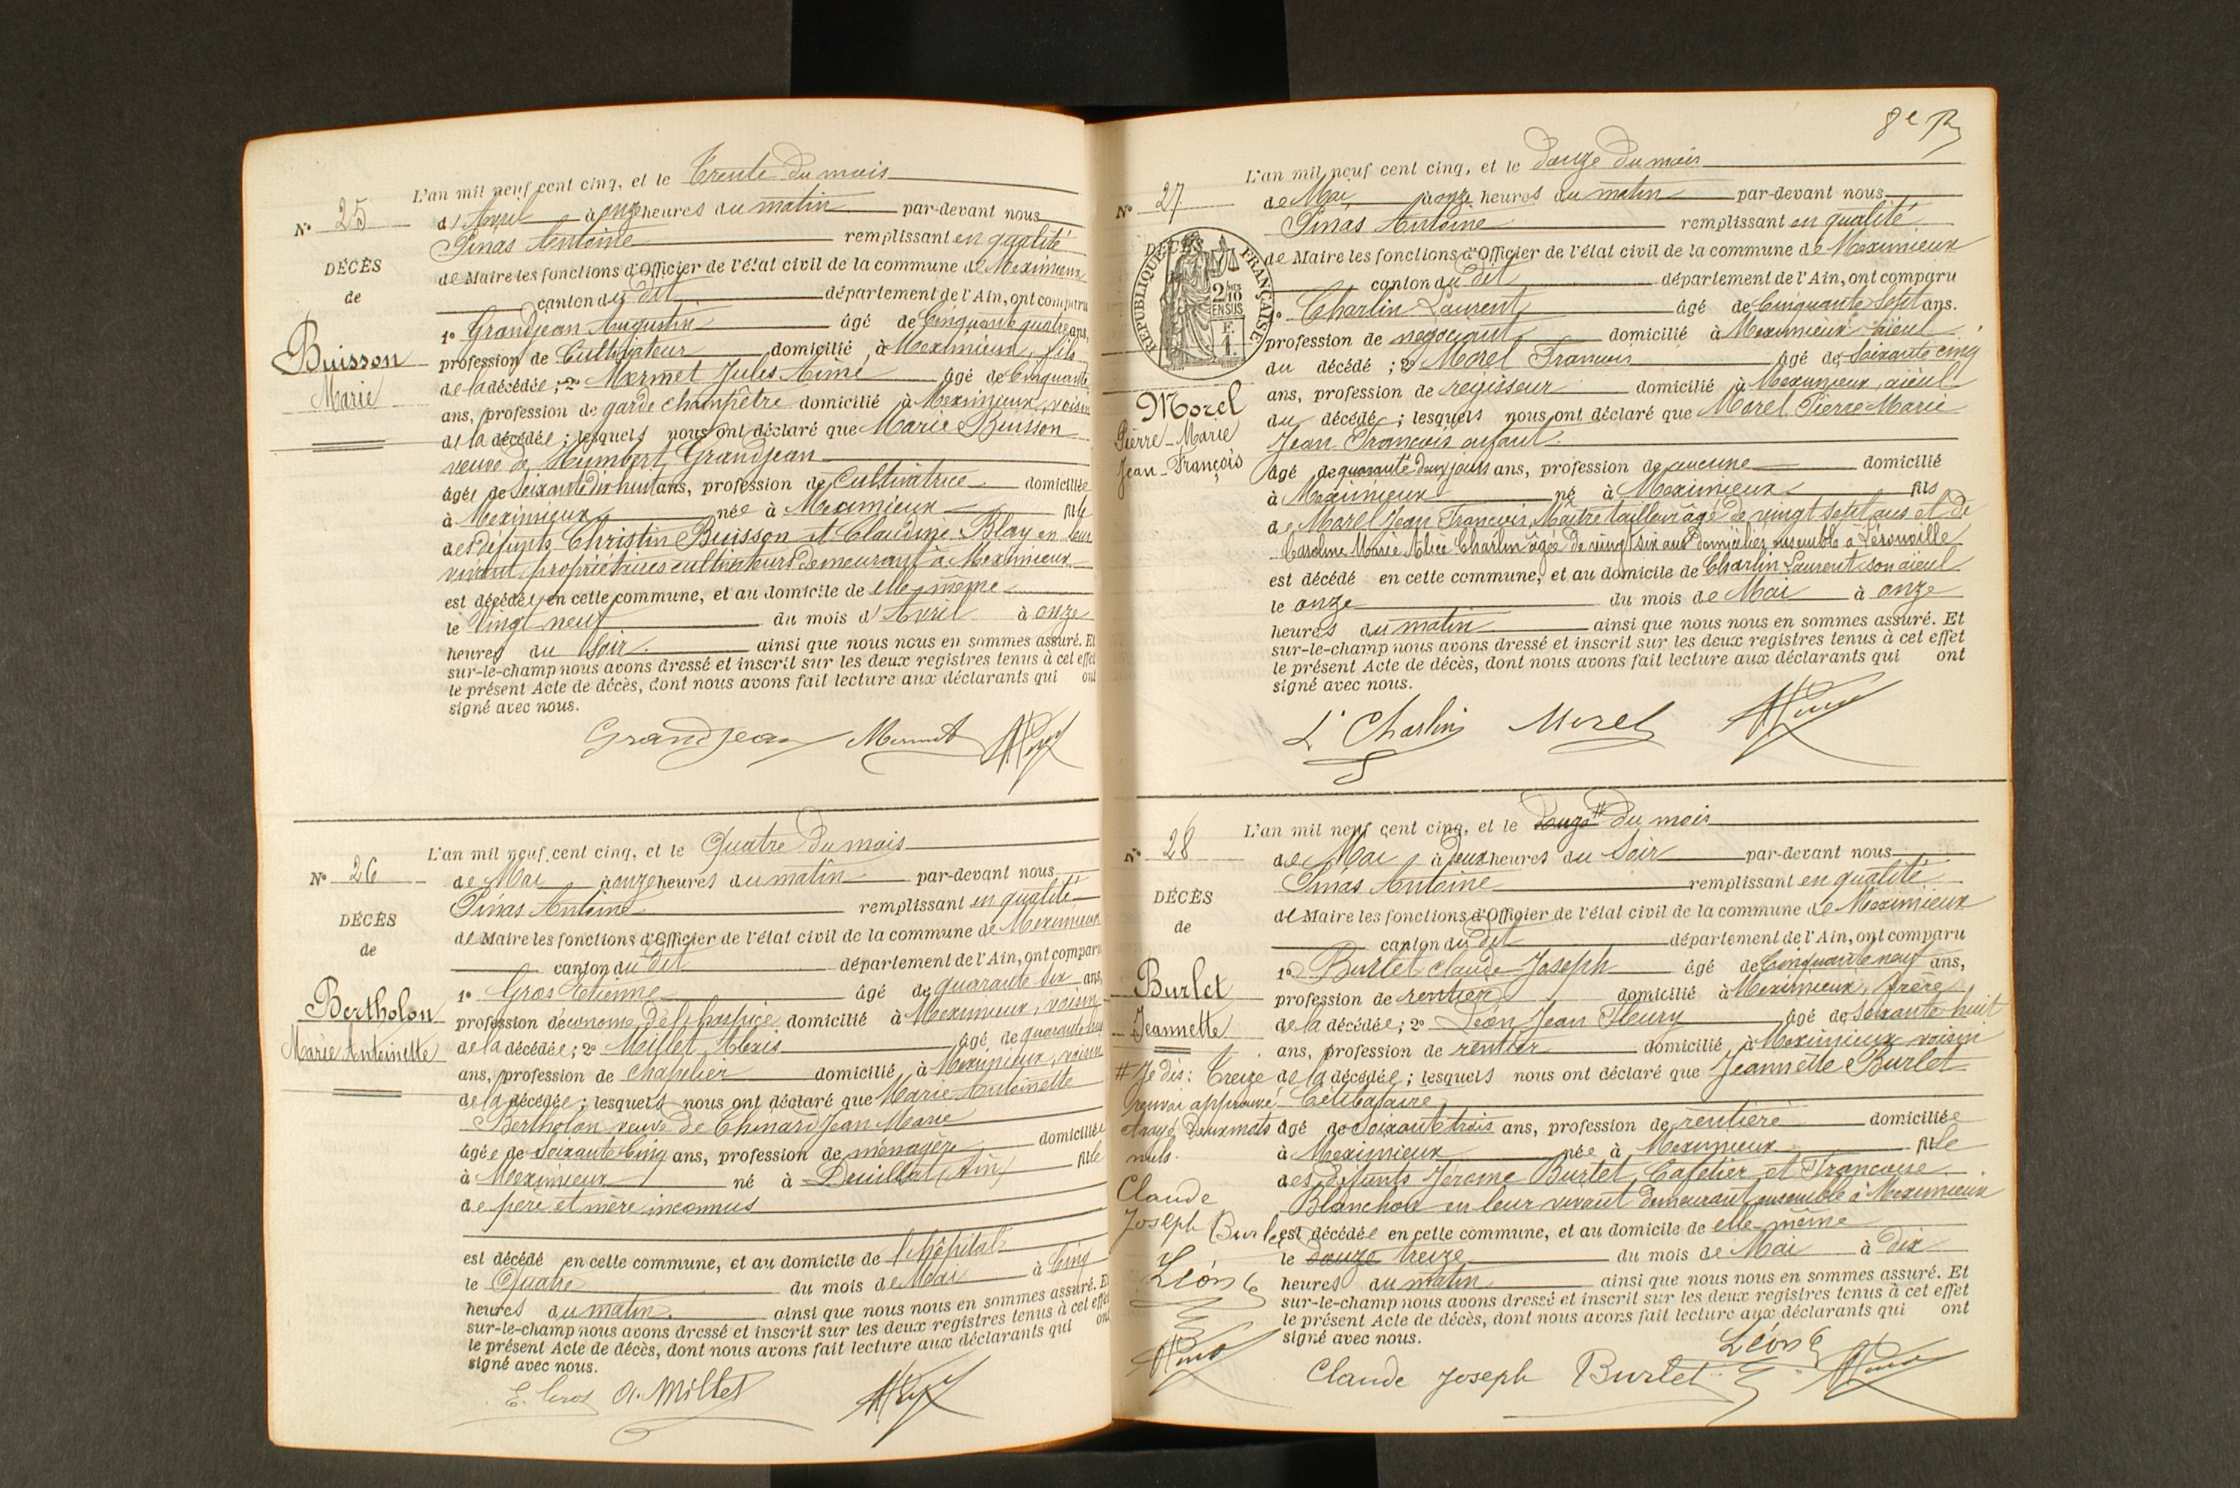 L'an mil neuf cent cinq, et le Trente du mois
N° 25 d'Avril à onze heures du matin par-devant nous
Pinas Antoine remplissant en qualité
de Maire les fonctions d'Officier de l'état civil de la commune de Meximieux
canton du dit département de l'Ain, ont comparu
1° Grandjean Augustin âgé de Cinquante quatre ans,
profession de Cultivateur domicilié à Meximieux, fils
de la décédée ; 2° Mermet Jules Aimé âgé de Cinquante
ans, profession de garde champêtre domicilié à Meximieux, voisin
de la décédée ; lesquels nous ont déclaré que Marie Buisson
veuve de Humbert Grandjean
âgée de Soixante dix huit ans, profession de Cultivatrice domiciliée
à Meximieux née à Meximieux fille
des défunts Christin Buisson et Claudine Blay en leur
vivant propriétaires cultivateurs demeurant à Meximieux
est décédée en cette commune, et au domicile de elle-même
le Vingt neuf du mois d'Avril à onze
heures du Soir. ainsi que nous nous en sommes assuré. Et
sur-le-champ nous avons dressé et inscrit sur les deux registres tenus à cet effet
le présent Acte de décès, dont nous avons fait lecture aux déclarants qui ont
signé avec nous.
DÉCÈS
de
Buisson
Marie
Grandjean Mermet
L'an mil neuf cent cinq, et le Quatre du mois
N° 26 de Mai à onze heures du matin par-devant nous
Pinas Antoine remplissant en qualité
de Maire les fonctions d'Officier de l'état civil de la commune de Meximieux
canton du dit département de l'Ain, ont comparu
1° Gros Etienne âgé de quarante six ans,
profession d'économe de l'hospice domicilié à Meximieux, voisin
de la décédée ; 2° Millet Alexis âgé de quarante
ans, profession de chapelier domicilié à Meximieux, voisin
de la décédée ; lesquels nous ont déclaré que Marie Antoinette
Bertholon veuve de Chenard Jean Marie
âgée de Soixante Cinq ans, profession de ménagère domiciliée
à Meximieux né à Druillat (Ain) fille
de père et mère inconnus
est décédé en cette commune, et au domicile de l'hôpital
le Quatre du mois de Mai à Cinq
heures du matin. ainsi que nous nous en sommes assuré. Et
sur-le-champ nous avons dressé et inscrit sur les deux registres tenus à cet effet
le présent Acte de décès, dont nous avons fait lecture aux déclarants qui ont
signé avec nous.
DÉCÈS
de
Bertholon
Marie Antoinette
E. Gros A. Millet
8e
L'an mil neuf cent cinq, et le douze du mois
N° 27 de Mai à onze heures du matin par-devant nous
Pinas Antoine remplissant en qualité
de Maire les fonctions d'Officier de l'état civil de la commune de Meximieux
canton du dit département de l'Ain, ont comparu
1° Charlin Laurent âgé de Cinquante Sept ans.
profession de négociant domicilié à Meximieux aïeul
du décédé ; 2° Morel François âgé de Soixante cinq
ans, profession de régisseur domicilié à Meximieux, aïeul
du décédé ; lesquels nous ont déclaré que Morel Pierre-Marie
Jean-François enfant
âgé de quarante deux jours ans, profession de aucune domicilié
à Meximieux né à Meximieux fils
de Morel Jean François, Maître tailleur âgé de vingt sept ans et de
Caroline Marie Alice Charlin âgée de vingt six ans domiciliés ensemble à Lérouville
est décédé en cette commune, et au domicile de Charlin Laurent son aïeul
le onze du mois de Mai à onze
heures du matin ainsi que nous nous en sommes assuré. Et
sur-le-champ nous avons dressé et inscrit sur les deux registres tenus à cet effet
le présent Acte de décès, dont nous avons fait lecture aux déclarants qui ont
signé avec nous.
DÉCÈS
RÉPUBLIQUE FRANÇAISE
2 10
EN SUS
F.
1.
Morel
Pierre-Marie
Jean-François
L. Charlin Morel
L'an mil neuf cent cinq, et le douze # du mois
N° 28 de Mai à deux heures du Soir par-devant nous
Pinas Antoine remplissant en qualité
de Maire les fonctions d'Officier de l'état civil de la commune de Meximieux
canton du dit département de l'Ain, ont comparu
1° Burlet Claude Joseph âgé de Cinquante neuf ans,
profession de rentier domicilié à Meximieux, frère
de la décédée ; 2° Léon Jean Fleury âgé de Soixante huit
ans, profession de rentier domicilié à Meximieux voisin
de la décédée ; lesquels nous ont déclaré que Jeannette Burlet
Célibataire
âgé de Soixante trois ans, profession de rentière domiciliée
à Meximieux née à Meximieux fille
des défunts Jérome Burlet, Cafetier et Françoise
Blanchon en leur vivant demeurant ensemble à Meximieux
est décédée en cette commune, et au domicile de elle-même
le douze treize du mois de Mai à Dix
heures du matin ainsi que nous nous en sommes assuré. Et
sur-le-champ nous avons dressé et inscrit sur les deux registres tenus à cet effet
le présent Acte de décès, dont nous avons fait lecture aux déclarants qui ont
signé avec nous.
DÉCÈS
de
Burlet
Jeannette
# Je dis : Treize
renvoi approuvé
et rayé deux mots
nuls.
Claude
Joseph Burlet
Léon
Claude Joseph Burlet Léon